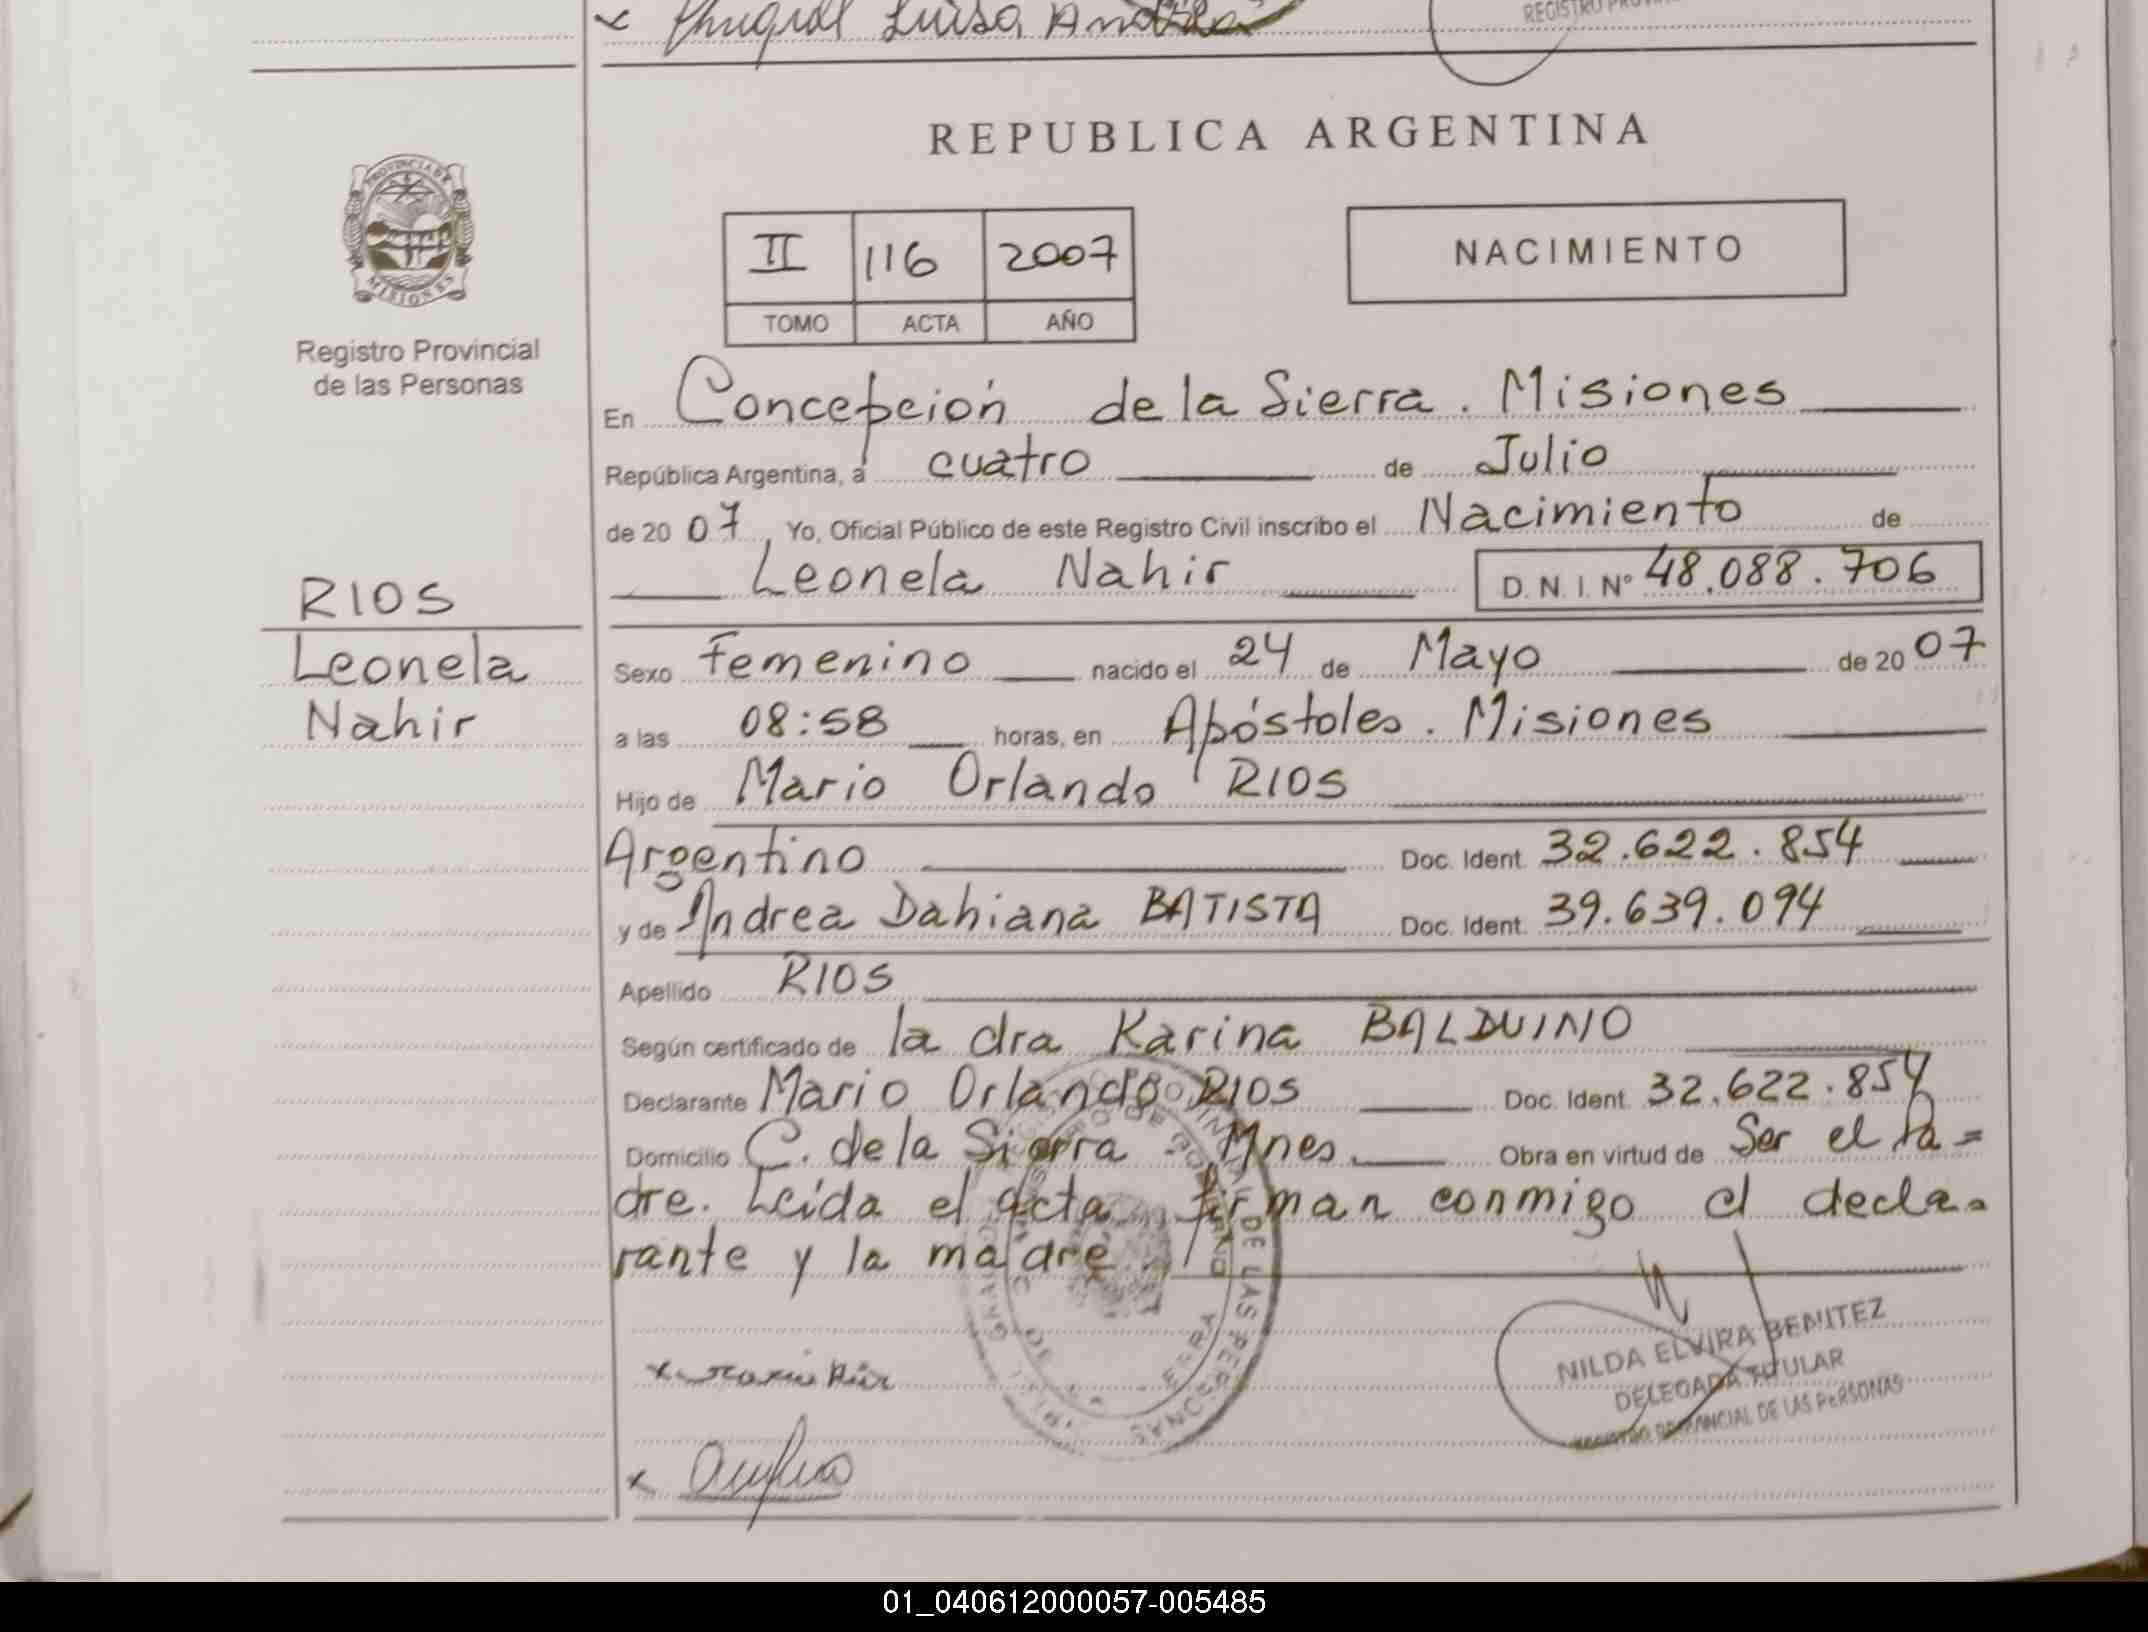 Luisa
REGISTRO
REPUBLICA ARGENTINA
PROVINCIA DE
MISIONES
Registro Provincial
de las Personas
II 116 2007
TOMO ACTA AÑO
NACIMIENTO
En Concepción de la Sierra. Misiones
República Argentina, a cuatro de Julio
de 20 07, Yo, Oficial Público de este Registro Civil inscribo el Nacimiento de
Leonela Nahir D. N. I. Nº 48.088.706
RIOS
Leonela
Nahir
Sexo Femenino nacido el 24 de Mayo de 20 07
a las 08:58 horas, en Apóstoles. Misiones
Hijo de Mario Orlando RIOS
Argentino Doc. Ident. 32.622.854
y de Andrea Dahiana BATISTA Doc. Ident. 39.639.094
Apellido RIOS
Según certificado de la dra Karina BALDUINO
Declarante Mario Orlando RIOS Doc. Ident. 32.622.854
Domicilio C. de la Sierra - Mnes. Obra en virtud de Ser el Pa=
dre. Leída el acta firman conmigo el decla-
rante y la madre
DE LAS PERSONAS
NILDA ELVIRA BENITEZ
DELEGADA TITULAR
REGISTRO PROVINCIAL DE LAS PERSONAS
x Mario Rios
x
01_040612000057-005485